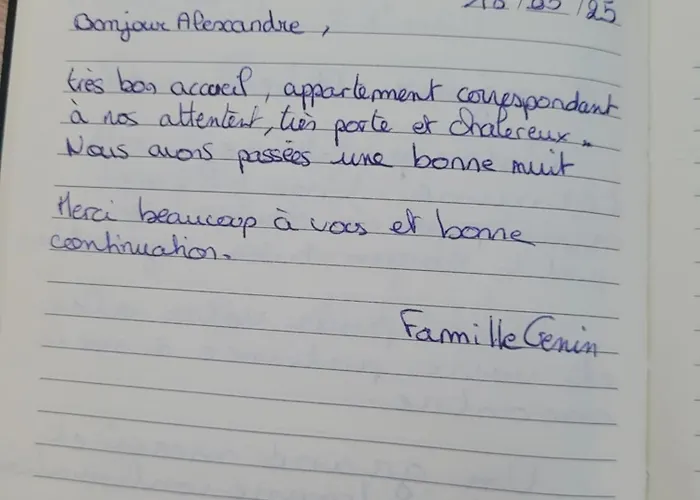 /25
Bonjour Alexandre,
très bon accueil, appartement correspondant
à nos attentent, très porte et chalereux.
Nous avons passées une bonne nuit
Merci beaucoup à vous et bonne
continuation.
Famille Genin